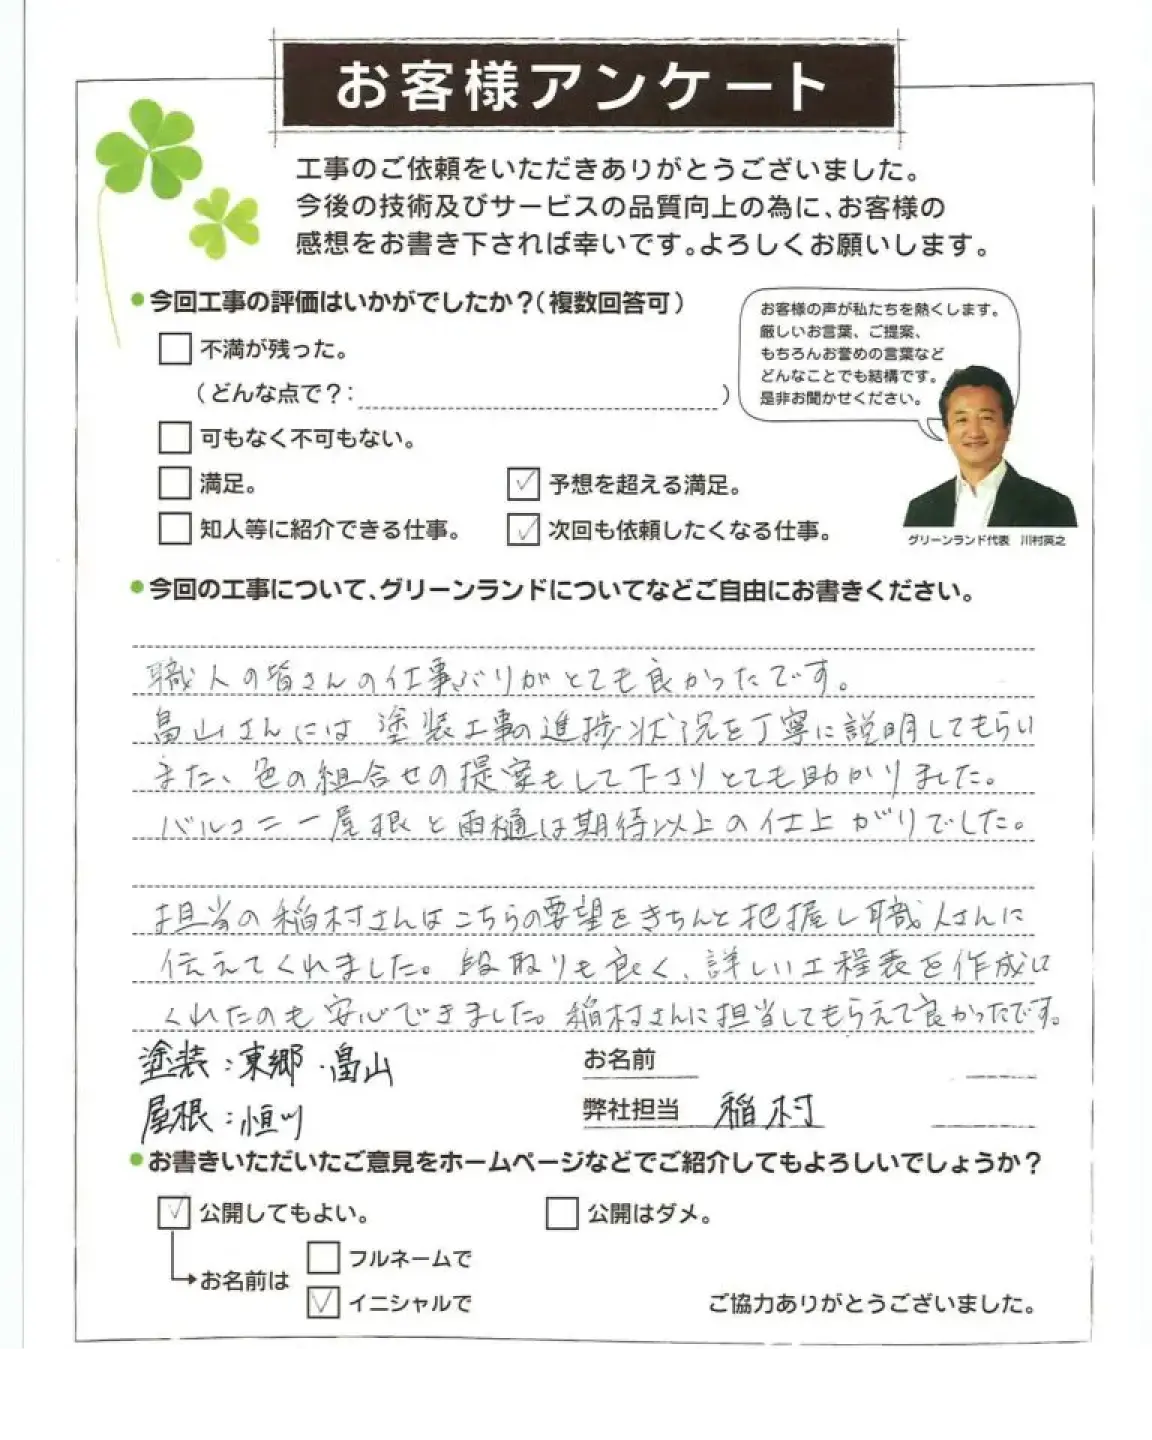 お客様アンケート
工事のご依頼をいただきありがとうございました。
今後の技術及びサービスの品質向上の為に、お客様の
感想をお書き下されば幸いです。よろしくお願いします。
●今回工事の評価はいかがでしたか?(複数回答可)
お客様の声が私たちを熱くします。
厳しいお言葉、ご提案、
もちろんお誉めの言葉など
どんなことでも結構です。
是非お聞かせください。
グリーンランド代表 川村英之
不満が残った。
(どんな点で?: )
可もなく不可もない。
満足。
✓ 予想を超える満足。
知人等に紹介できる仕事。
✓ 次回も依頼したくなる仕事。
●今回の工事について、グリーンランドについてなどご自由にお書きください。
職人の皆さんの仕事ぶりがとても良かったです。
畠山さんには 塗装工事の進捗状況を丁寧に説明してもらい
また、色の組合せの提案もして下さりとても助かりました。
バルコニー屋根と雨樋は期待以上の仕上がりでした。
担当の稲村さんはこちらの要望をきちんと把握し職人さんに
伝えてくれました。段取りも良く、詳しい工程表を作成し
くれたのも安心できました。稲村さんに担当してもらえて良かったです。
塗装:東郷・畠山
お名前
屋根:恒川
弊社担当 稲村
●お書きいただいたご意見をホームページなどでご紹介してもよろしいでしょうか?
✓ 公開してもよい。
公開はダメ。
お名前は
フルネームで
✓ イニシャルで
ご協力ありがとうございました。